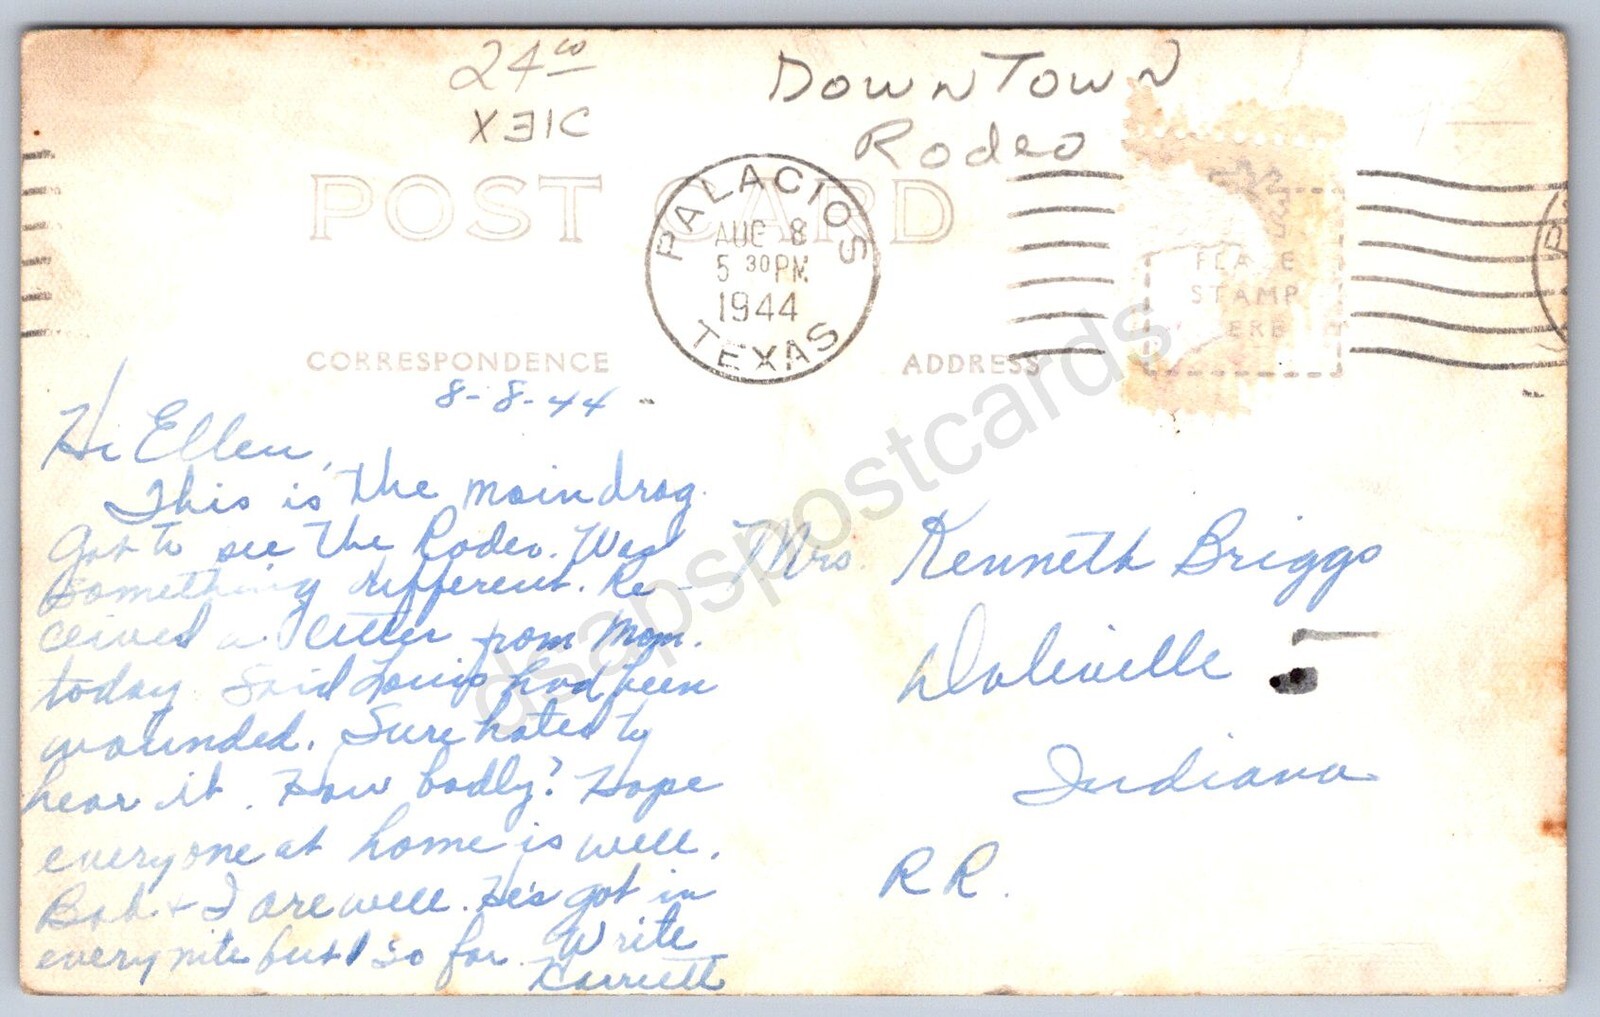 24⁰⁰
XE1C
DOWNTOWN
Rodeo
POST CARD
PALACIOS
AUG 8
5 30 PM
1944
TEXAS
PLACE
STAMP
HERE
CORRESPONDENCE
ADDRESS
8-8-44
Hi Ellen,
This is the main drag.
Got to see the Rodeo. Was
something different. Re-
ceived a letter from Mom.
today. Said Louis had been
wounded. Sure hated to
hear it. How badly? Hope
everyone at home is well.
Bob + I are well. He's got in
every nite but 1 so far. Write
Mrs. Kenneth Briggs
Daleville
Indiana
RR.
dsapspostcards